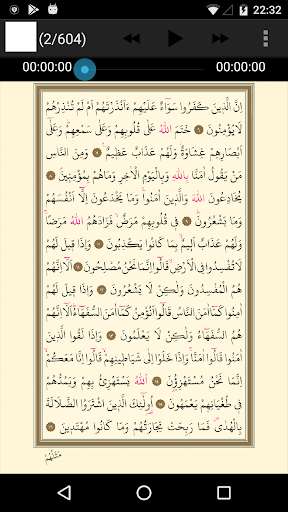 22:32
(2/604)
00:00:00 00:00:00
اِنَّ الَّذ۪ينَ كَفَرُوا سَوَٓاءٌ عَلَيْهِمْ ءَاَنْذَرْتَهُمْ اَمْ لَمْ تُنْذِرْهُمْ
لَا يُؤْمِنُونَ ﴿٦﴾ خَتَمَ اللّٰهُ عَلٰى قُلُوبِهِمْ وَعَلٰى سَمْعِهِمْ وَعَلٰٓى
اَبْصَارِهِمْ غِشَاوَةٌ وَلَهُمْ عَذَابٌ عَظ۪يمٌ ﴿٧﴾ وَمِنَ النَّاسِ
مَنْ يَقُولُ اٰمَنَّا بِاللّٰهِ وَبِالْيَوْمِ الْاٰخِرِ وَمَا هُمْ بِمُؤْمِن۪ينَ ﴿٨﴾
يُخَادِعُونَ اللّٰهَ وَالَّذ۪ينَ اٰمَنُوا وَمَا يَخْدَعُونَ اِلَّٓا اَنْفُسَهُمْ
وَمَا يَشْعُرُونَ ﴿٩﴾ ف۪ي قُلُوبِهِمْ مَرَضٌ فَزَادَهُمُ اللّٰهُ مَرَضًا
وَلَهُمْ عَذَابٌ اَل۪يمٌ بِمَا كَانُوا يَكْذِبُونَ ﴿١٠﴾ وَاِذَا ق۪يلَ لَهُمْ
لَا تُفْسِدُوا فِي الْاَرْضِ قَالُٓوا اِنَّمَا نَحْنُ مُصْلِحُونَ ﴿١١﴾ اَلَٓا اِنَّهُمْ
هُمُ الْمُفْسِدُونَ وَلٰكِنْ لَا يَشْعُرُونَ ﴿١٢﴾ وَاِذَا ق۪يلَ لَهُمْ
اٰمِنُوا كَمَٓا اٰمَنَ النَّاسُ قَالُٓوا اَنُؤْمِنُ كَمَٓا اٰمَنَ السُّفَهَٓاءُ اَلَٓا اِنَّهُمْ
هُمُ السُّفَهَٓاءُ وَلٰكِنْ لَا يَعْلَمُونَ ﴿١٣﴾ وَاِذَا لَقُوا الَّذ۪ينَ
اٰمَنُوا قَالُٓوا اٰمَنَّا وَاِذَا خَلَوْا اِلٰى شَيَاط۪ينِهِمْ قَالُٓوا اِنَّا مَعَكُمْ
اِنَّمَا نَحْنُ مُسْتَهْزِؤُ۫نَ ﴿١٤﴾ اَللّٰهُ يَسْتَهْزِئُ بِهِمْ وَيَمُدُّهُمْ
ف۪ي طُغْيَانِهِمْ يَعْمَهُونَ ﴿١٥﴾ اُو۬لٰٓئِكَ الَّذ۪ينَ اشْتَرَوُا الضَّلَالَةَ
بِالْهُدٰى فَمَا رَبِحَتْ تِجَارَتُهُمْ وَمَا كَانُوا مُهْتَد۪ينَ ﴿١٦﴾
مَثَلُهُمْ